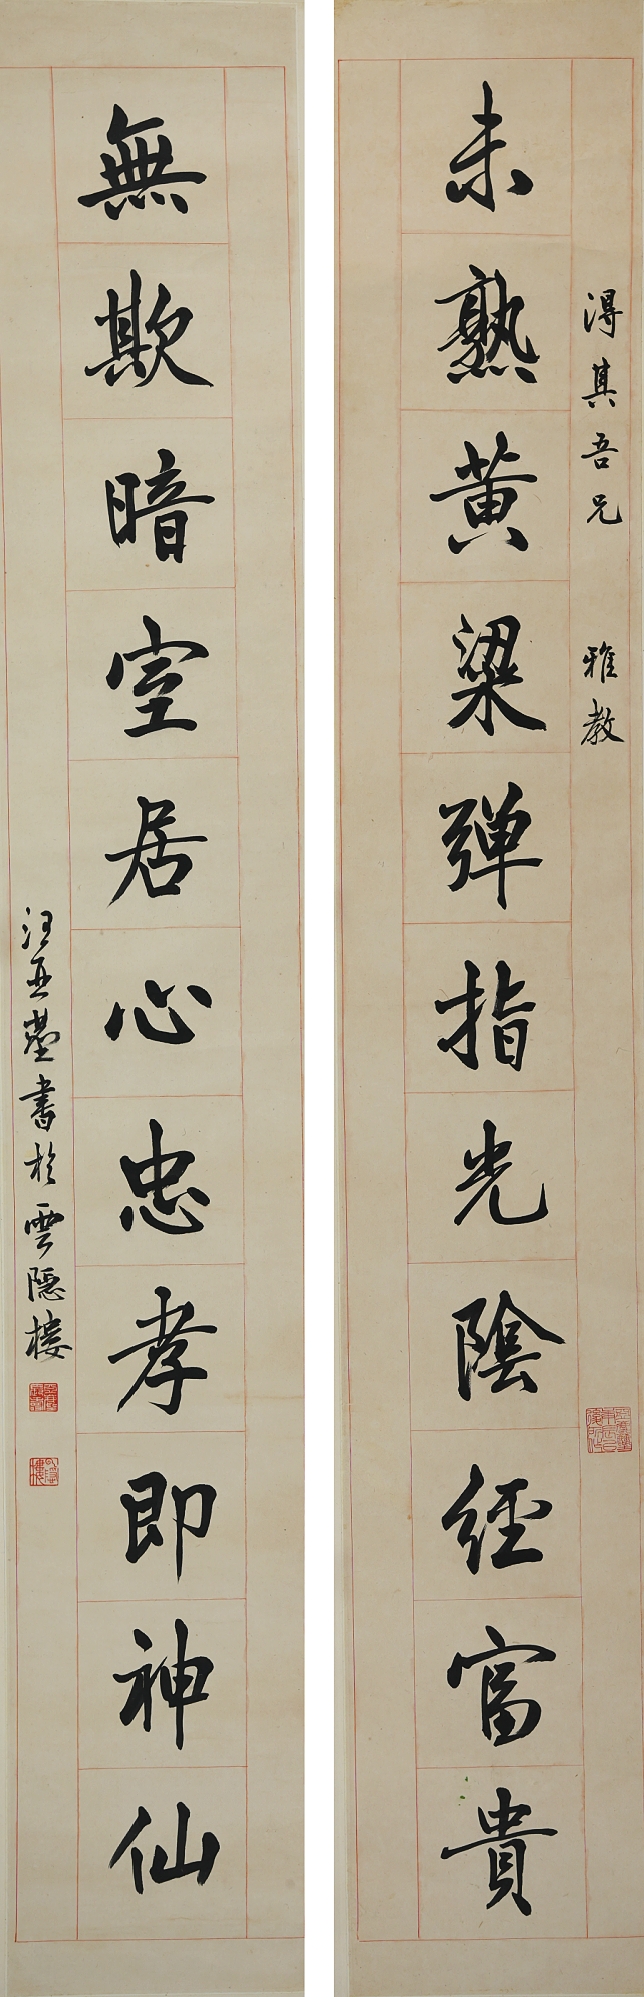 得真吾兄 雅教
未熟黄梁弹指光陰經富貴
無欺暗室居心忠孝即神仙
汪亞塵書於雲隱樓